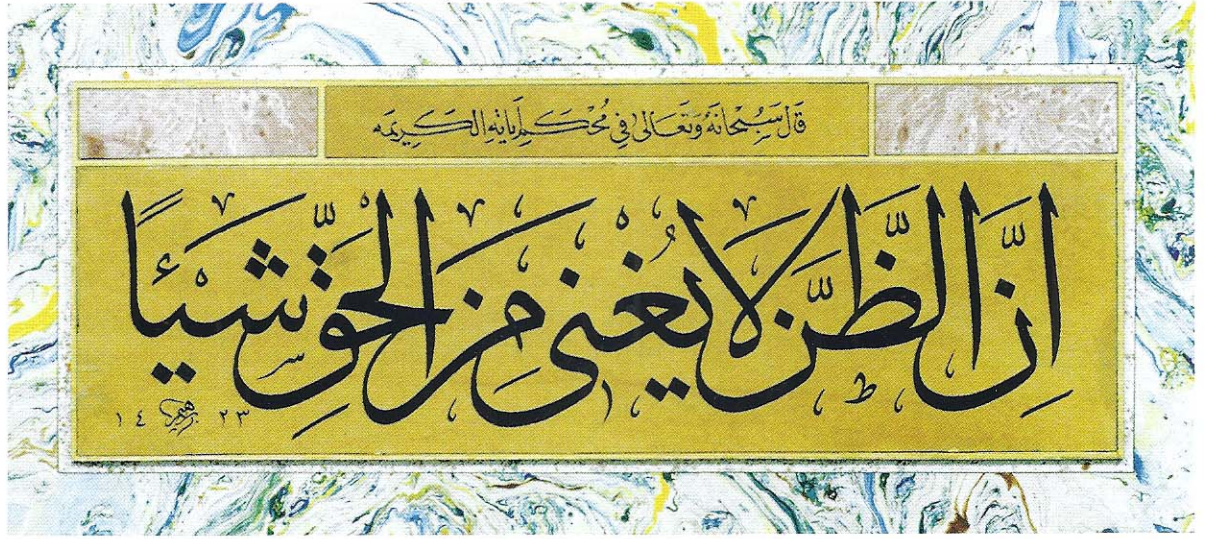 قَالَ سُبْحَانَهُ وَتَعَالٰى فِي مُحْكَمِ آيَاتِهِ الْكَرِيمَه
اِنَّ الظَّنَّ لَا يُغْنِى مِنَ الْحَقِّ شَيْئًا
١٤ ٢٣